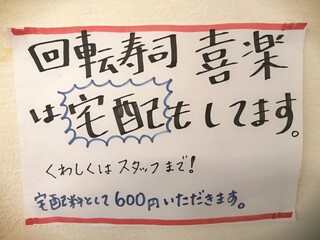 回転寿司 喜楽
は宅配もしてます。
くわしくはスタッフまで!
宅配料として600円いただきます。